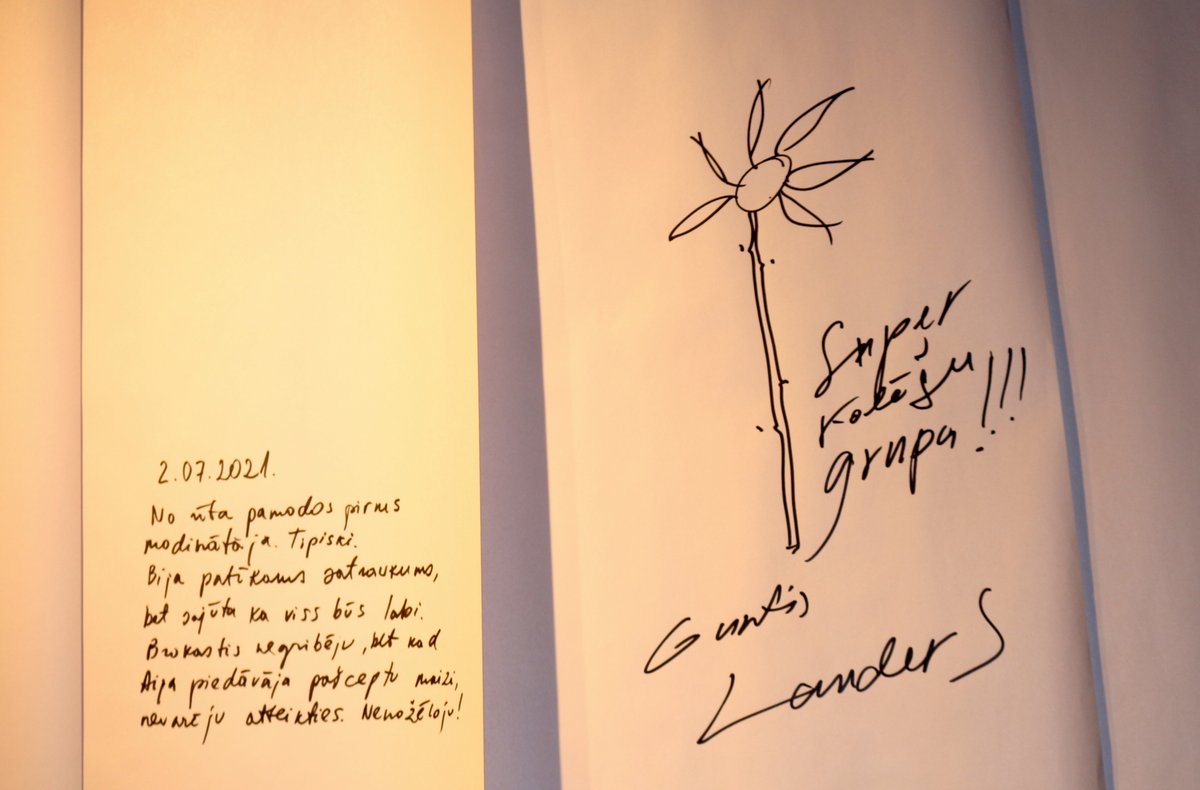 2.07.2021.
No rīta pamodos pirms
modinātāja. Tipiski.
Bija patīkams satraukums,
bet sajūta ka viss būs labi.
Brokastis negribēju, bet kad
Aija piedāvāja pašceptu maizi,
nevarēju atteikties. Nenožēloju!
Super
kolēģu
grupa!!!
Guntis
Landers